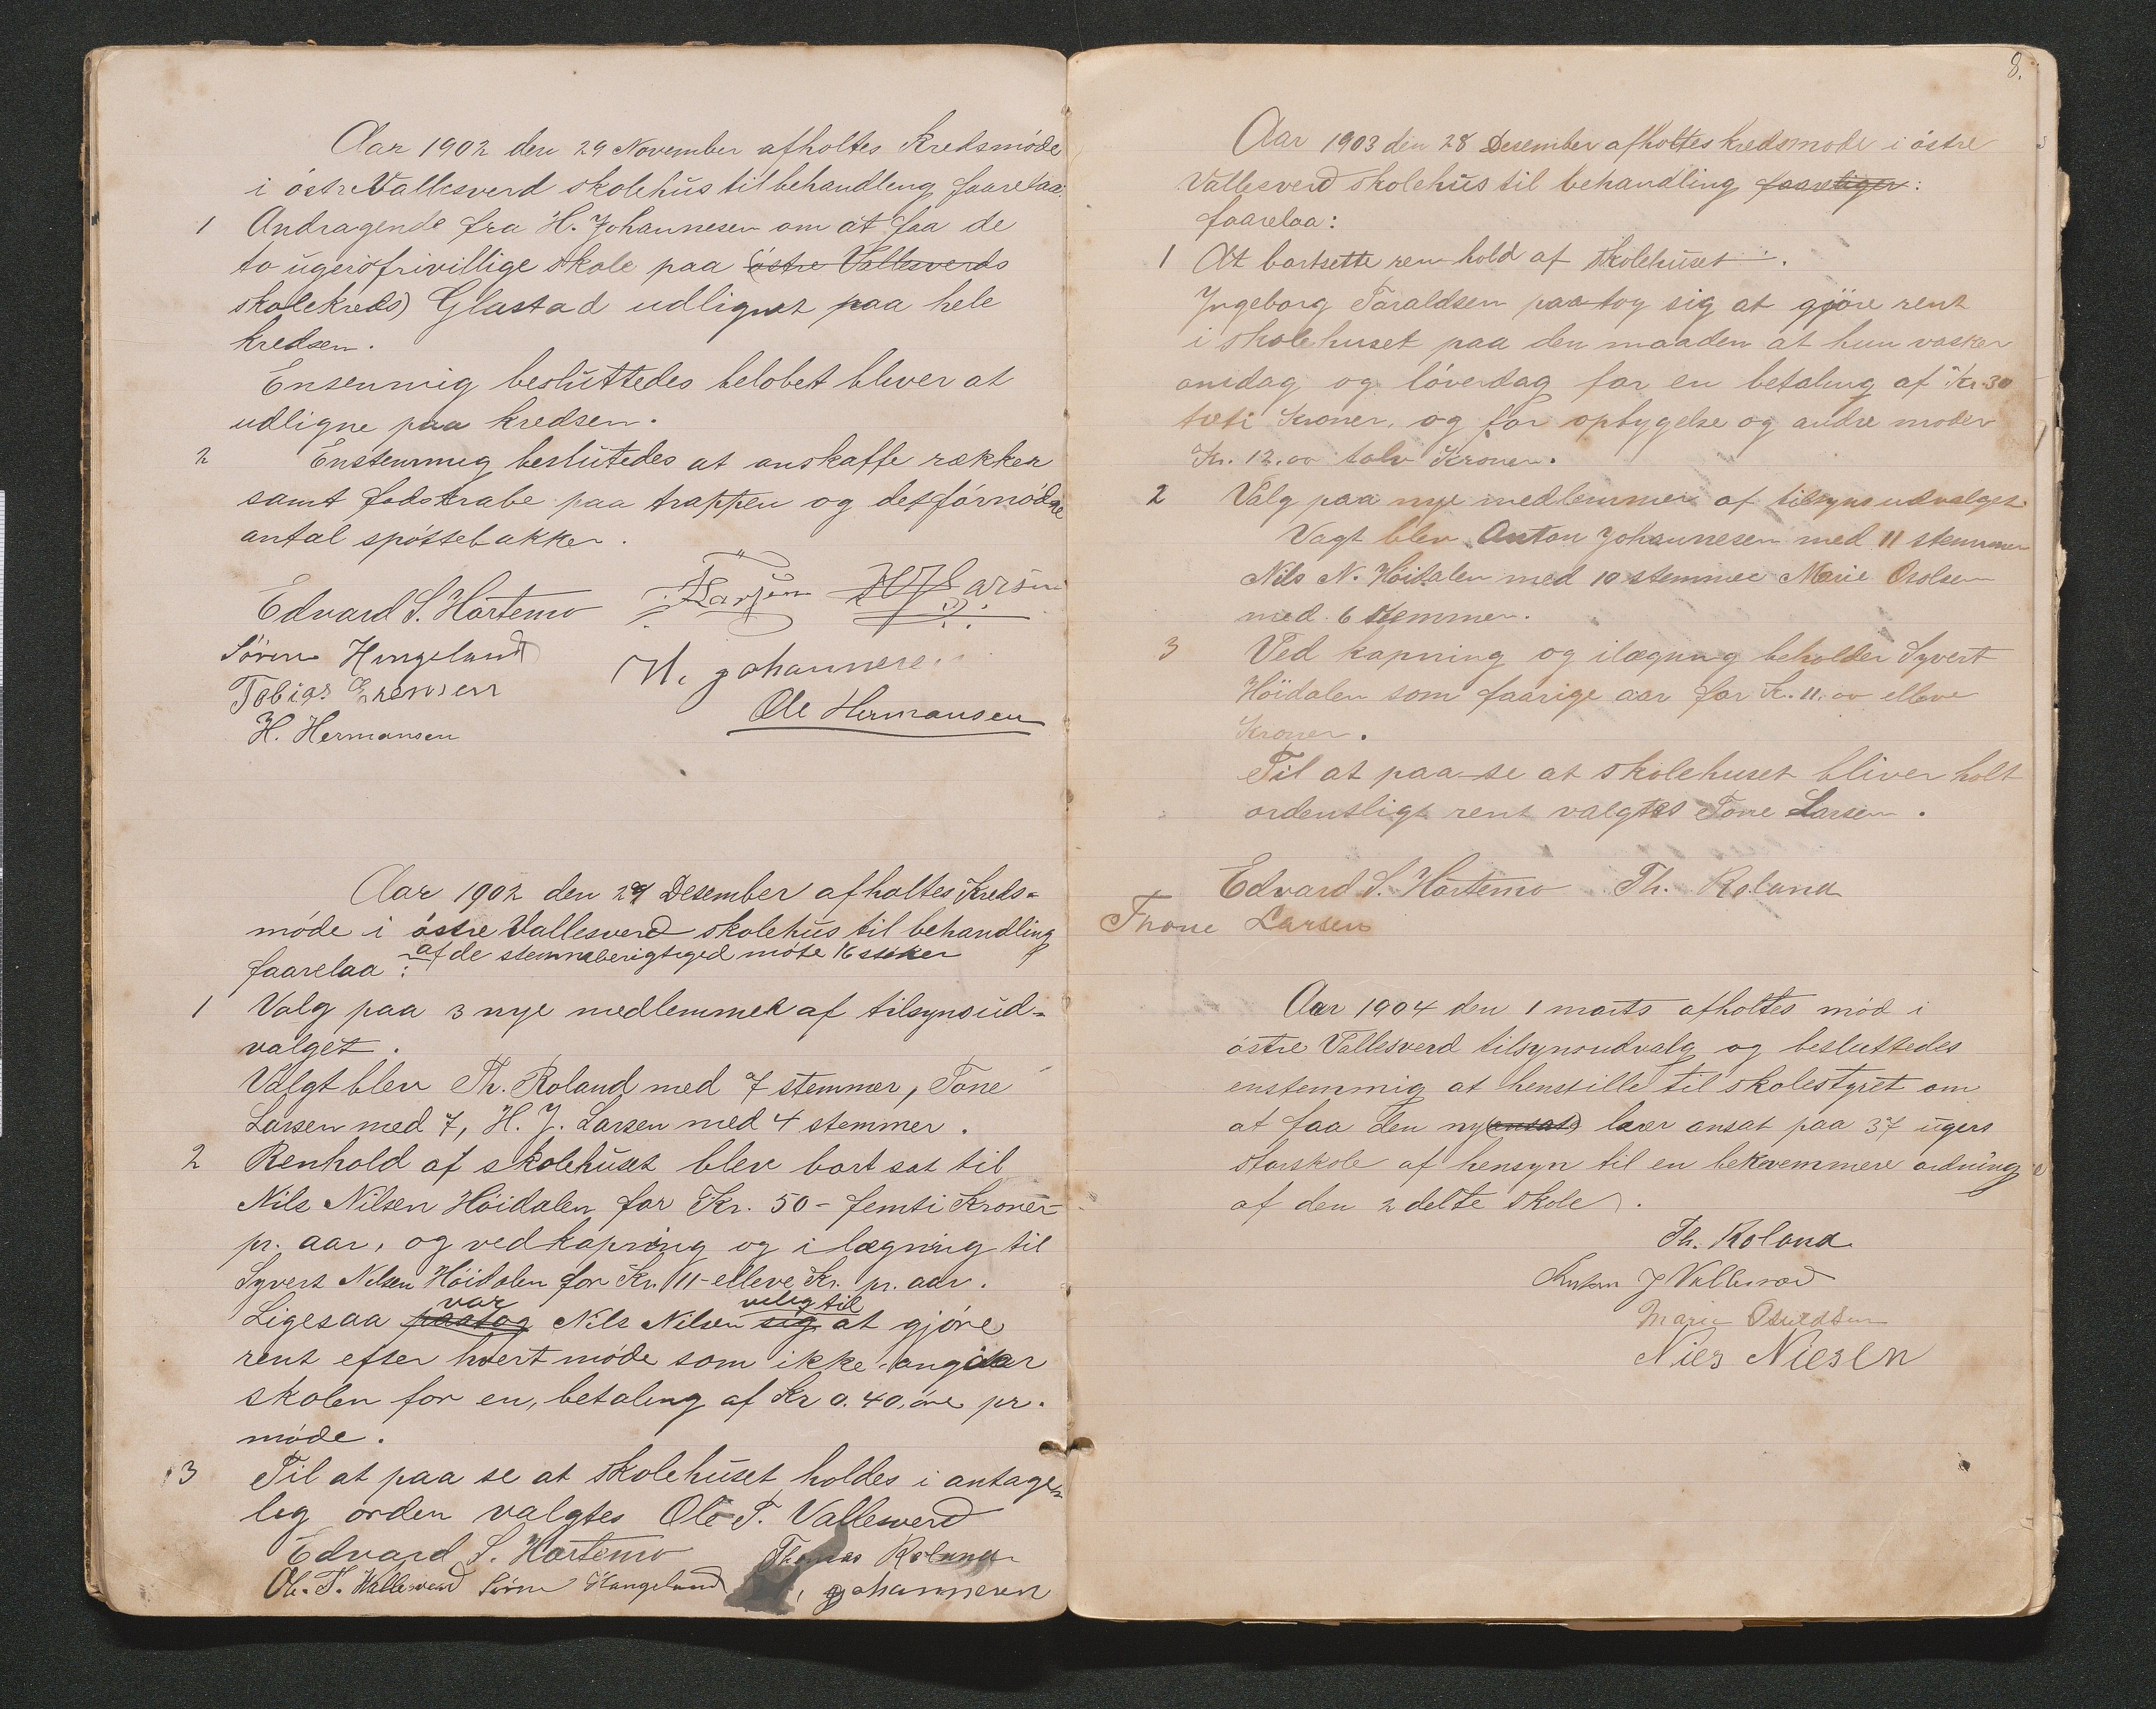 Aar 1902 den 29 November afholtes Kredsmöde
i östre Vallesverd skolehus til behandleng faarelaa:
1 Andragende fra H. Johannesen om at faa de
to ugers frivillige skole paa (östre Vallesverds
skolekreds) Glastad udlignet paa hele
kredsen.
Ensenmig besluttedes belobet blever at
udligne paa kredsen.
2 Enstemmig beslutedes at anskaffe rækker
samt fodskrabe paa trappen og det förnödne
antal spöttebakker.
Edvard S. Hartemo T Larsen H J Larsen
Sören Hengelund H. Johannesen
Tobias Erensen
Ole Hermansen
H. Hermansen
Aar 1902 den 29 Desember afholtes Kreds-
möde i östre Vallesverd skolehus til behandling
af de stemmeberigtiged møte 16 styker
faarelaa:
1 Valg paa 3 nye medlemmer af tilsynsud-
valget.
Valgt blev Th. Roland med 7 stemmer, Tone
Larsen med 7, H. J. Larsen med 4 stemmer.
2 Renhold af skolehuset blev bort sat til
Nils Nilsen Höidalen for Kr. 50 - femti Kroner -
pr. aar, og vedkapning og ilægning til
Syvert Nilsen Höidalen for Kr. 11 - elleve Kr. pr. aar.
var veleg til
Ligesaa paatog Nils Nilsen sig at gjöre
rent efter hvert möde som ikke angaar
skolen for en, betaleng af Kr 0.40, öre pr.
möde.
3 Til at paa se at skolehuset holdes i antage-
leg orden valgtes Ole T. Vallesverd
Edvard S. Hartemo Thomas Roland
Ole. T. Wallesverd Sörne Hangeland H, Johannesen
8.
Aar 1903 den 28 Desember afholtes kredsmode i östre
Vallesverd skolehus til behandling faareliger:
faarelaa:
1 At bortsette renhold af skolehuset.
Yngeborg Taraldsen paatog sig at gjöre rent
i skolehuset paa den maaden at hun vasker
onsdag og löverdag for en betaling af Kr. 30
treti Kroner, og for opbygelse og andre moder
Kr. 12.00 tolv Kroner.
2 Valg paa nye medlemmer af tilsynsudvalget.
Vagt blev Anton Johannesen med 11 stemmer
Nils N. Höidalen med 10 stemmer Marie Osolsen
med 6 stemmer.
3 Ved kapning og ilægning beholder Syvert
Höidalen som faarige aar for Kr. 11.00 elleve
Kroner.
Til at paa-se at skolehuset bliver holt
ordentsligt rent valgtes Tone Larsen.
Edvard S. Hartemo Th. Roland
Thone Larsen
Aar 1904 den 1 marts afholtes möd i
östre Vallesverd tilsynsudvalg og besluttedes
enstemmig at henstille til skolestyret om
at faa den ny (ansat) lærer ansat paa 37 ugers
storskole af hensyn til en bekvemmere ordning
af den 2 delte skole.
Th. Roland
Anton J Vallesverd
Marie Osuldsen
Niels Nielsen